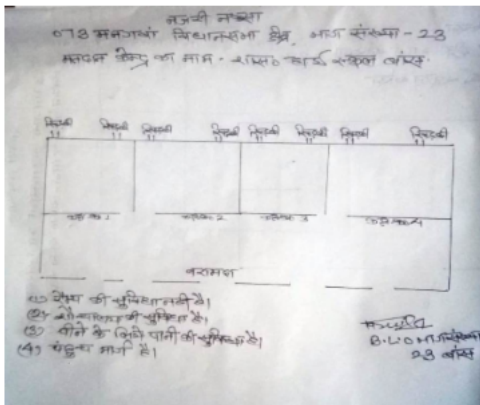 नजरी नक्शा
078 मनगवां विधानसभा क्षेत्र, भाग संख्या - 23
मतदान केन्द्र का नाम - शास० स्कूल बांस
खिड़की खिड़की खिड़की खिड़की खिड़की खिड़की खिड़की खिड़की
बरामदा
(1) रैम्प की सुविधा नही है।
(2) शौचालय की सुविधा है।
(3) पीने के लिये पानी की सुविधा है।
(4) पहुच मार्ग है।
B.L.O भाग संख्या
23 बांस